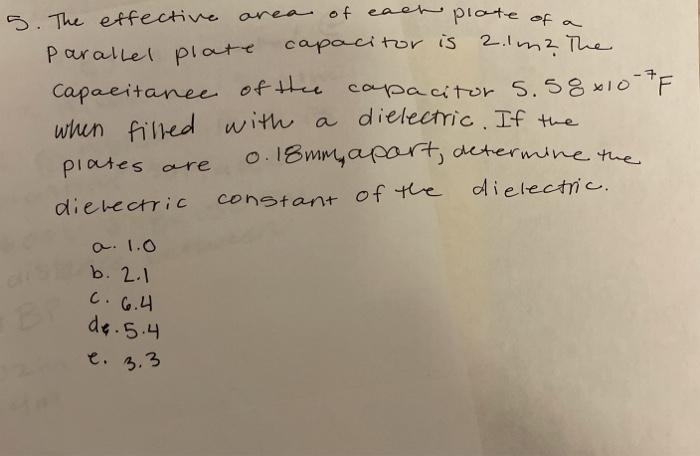 5. The effective area of each plate of a
parallel plate capacitor is 2.1m². The
capacitance of the capacitor 5.58 x10⁻⁷F
when filled with a dielectric. If the
plates are 0.18mm, apart, determine the
dielectric constant of the dielectric.
a. 1.0
b. 2.1
c. 6.4
d. 5.4
e. 3.3